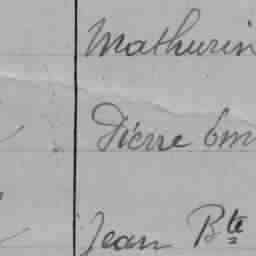 Mathurin
Pierre Em
Jean Bte